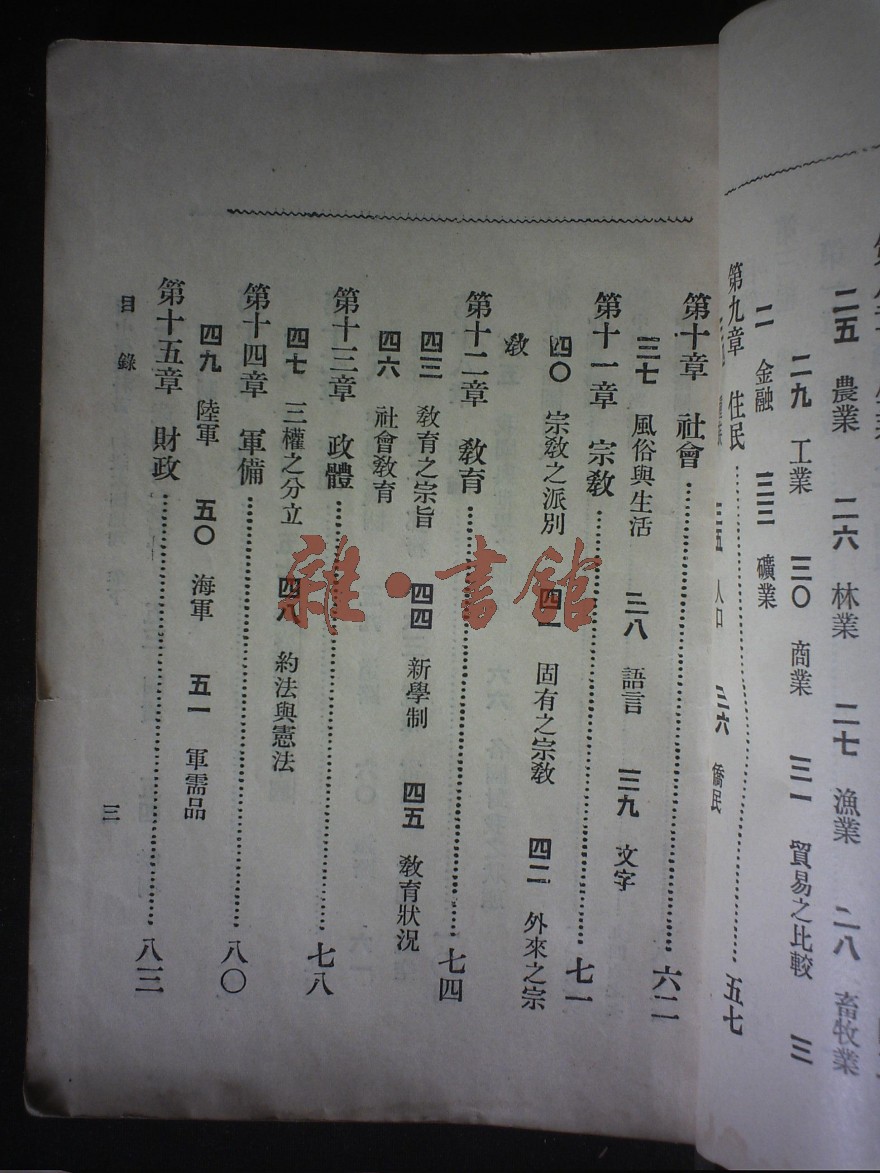 二五 農業 二六 林業 二七 漁業 二八 畜牧業
二九 工業 三〇 商業 三一 貿易之比較 三
二 金融 三三 礦業
第九章 住民……五七
三五 人口 三六 僑民
第十章 社會……六二
三七 風俗與生活 三八 語言 三九 文字
第十一章 宗敎……七一
四〇 宗敎之派別 四一 固有之宗敎 四二 外來之宗
敎
第十二章 敎育……七四
四三 敎育之宗旨 四四 新學制 四五 敎育狀況
四六 社會敎育
第十三章 政體……七八
四七 三權之分立 四八 約法與憲法
第十四章 軍備……八〇
四九 陸軍 五〇 海軍 五一 軍需品
第十五章 財政……八三
目錄
三
雜·書館